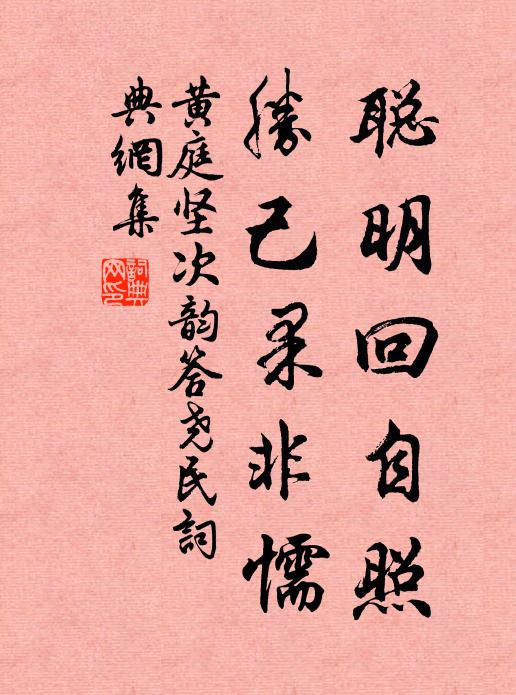 聪明回自照
胜己果非懦
黄庭坚次韵答尧民詞
典網集
詞典
网印